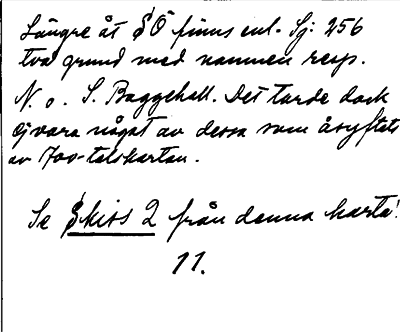 Längre åt SÖ finns enl. Sj. 256
två grund med namnen resp.
N. o. S. Baggehall. Det torde dock
ej vara något av dessa som åsyftats
av 700-talskartan.
Se Skiss 2 från denna karta!
11.